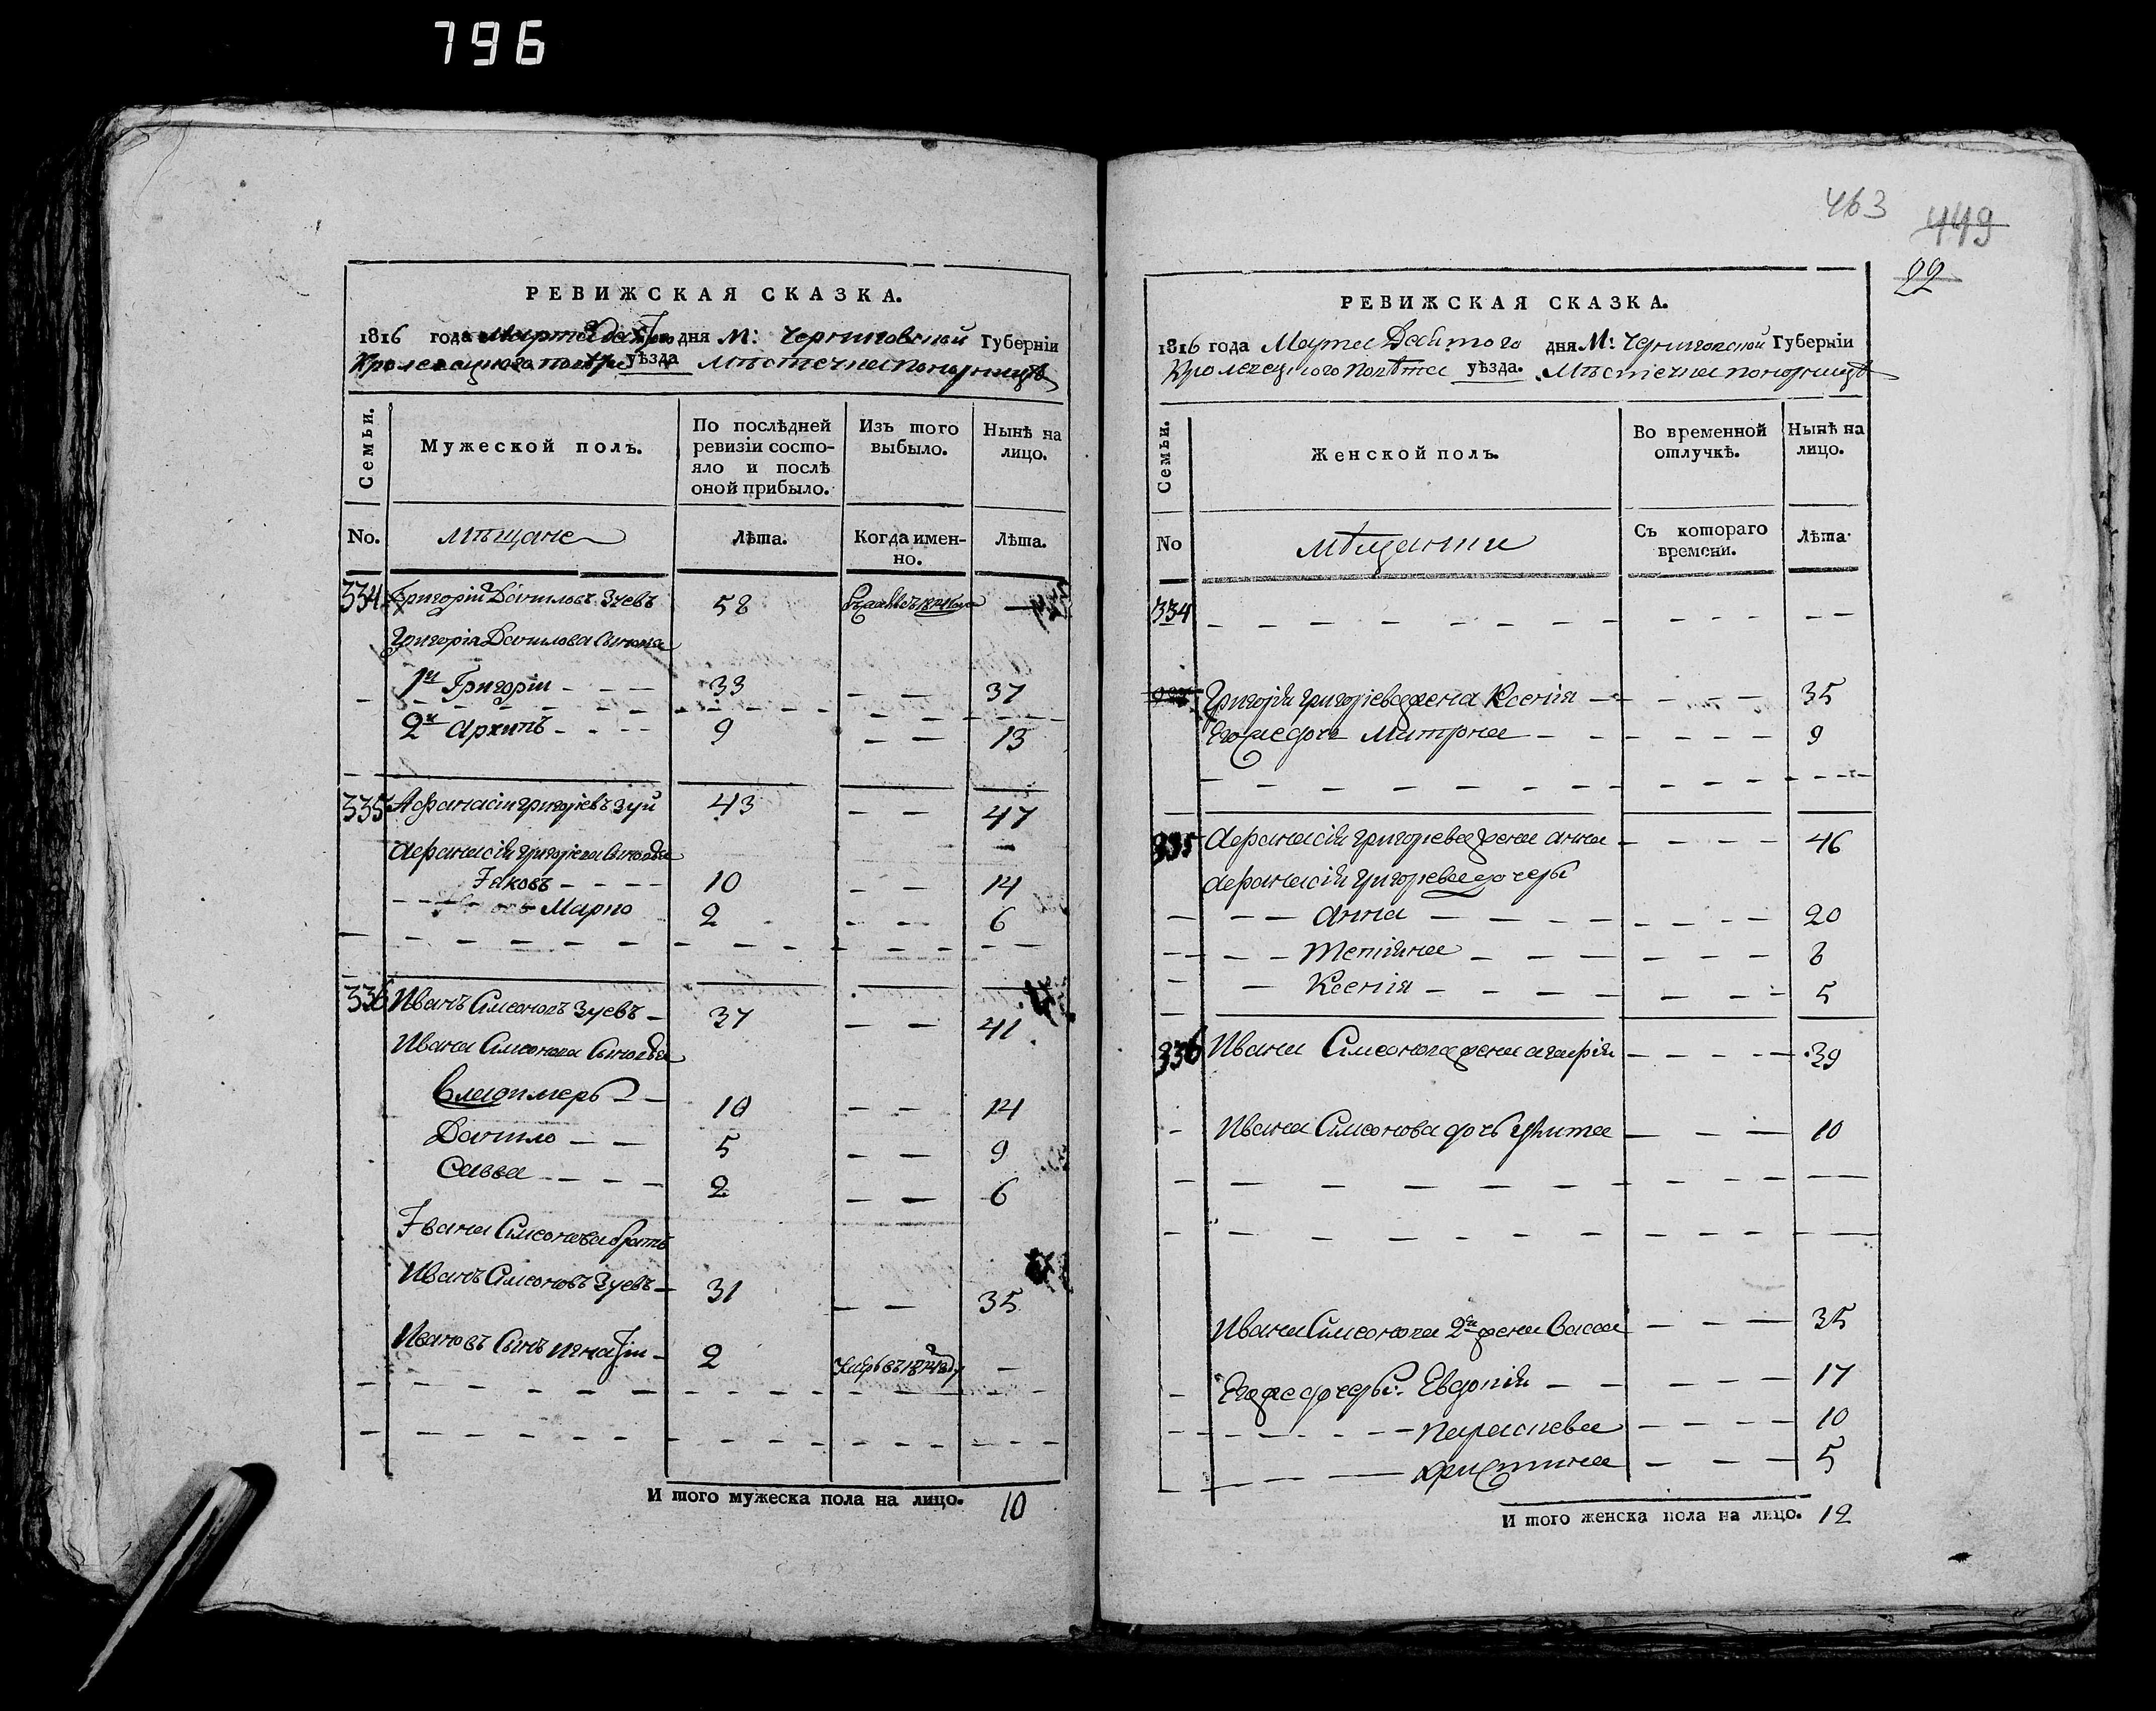 796
463
449
22
РЕВИЖСКАЯ СКАЗКА.
1816 года Марта дня М: Черниговской Губерніи
Кролевецкого повѣта уѣзда Мѣстечка Понорницѣ
Семьи.
Мужеской полъ.
По послѣдней ревизіи состояло и послѣ оной прибыло.
Изъ того выбыло.
Нынѣ на лицо.
No. мѣщане Лѣта. Когда именно. Лѣта.
334 Григорій Даниловъ Зуевъ 58 —
Григорія Данилова
1й Григоріи 33 — — 37
2й Архипъ 9 — — 13
335 Афанасіи Григоріевъ Зуй 43 — — 47
Афанасія Григоріева сыновья
Іаковъ 10 — — 14
Марко 2 — — 6
336 Иванъ Симоновъ Зуевъ 37 — — 41
Ивана Симонова сыновья
Владимеръ 10 — — 14
Данило 5 — — 9
Савва 2 — — 6
Івана Симонова братъ
Иванъ Симоновъ Зуевъ 31 — — 35
Ивановъ сынъ Игнатіи 2 —
И того мужеска пола на лицо. 10
РЕВИЖСКАЯ СКАЗКА.
1816 года Марта дня М: Черниговской Губерніи
Кролевецкого Повѣта уѣзда. Мѣстечка Понорницѣ
Семьи.
Женской полъ.
Во временной отлучкѣ.
Нынѣ на лицо.
No мѣщанки Съ котораго времени. Лѣта.
334
Григорія Григоріева жена Ксенія 35
Его же дочь Мотрна 9
335 Афанасія Григоріева жена Анна 46
Афанасія Григоріева дочери
Анна 20
Татіяна 8
Ксенія 5
336 Ивана Симонова жена Агафія 39
Ивана Симонова дочь 10
Ивана Симонова 2й жена Васса 35
Его же дочери: Евдокія 17
Параскева 10
Христина 5
И того женска пола на лицо. 12